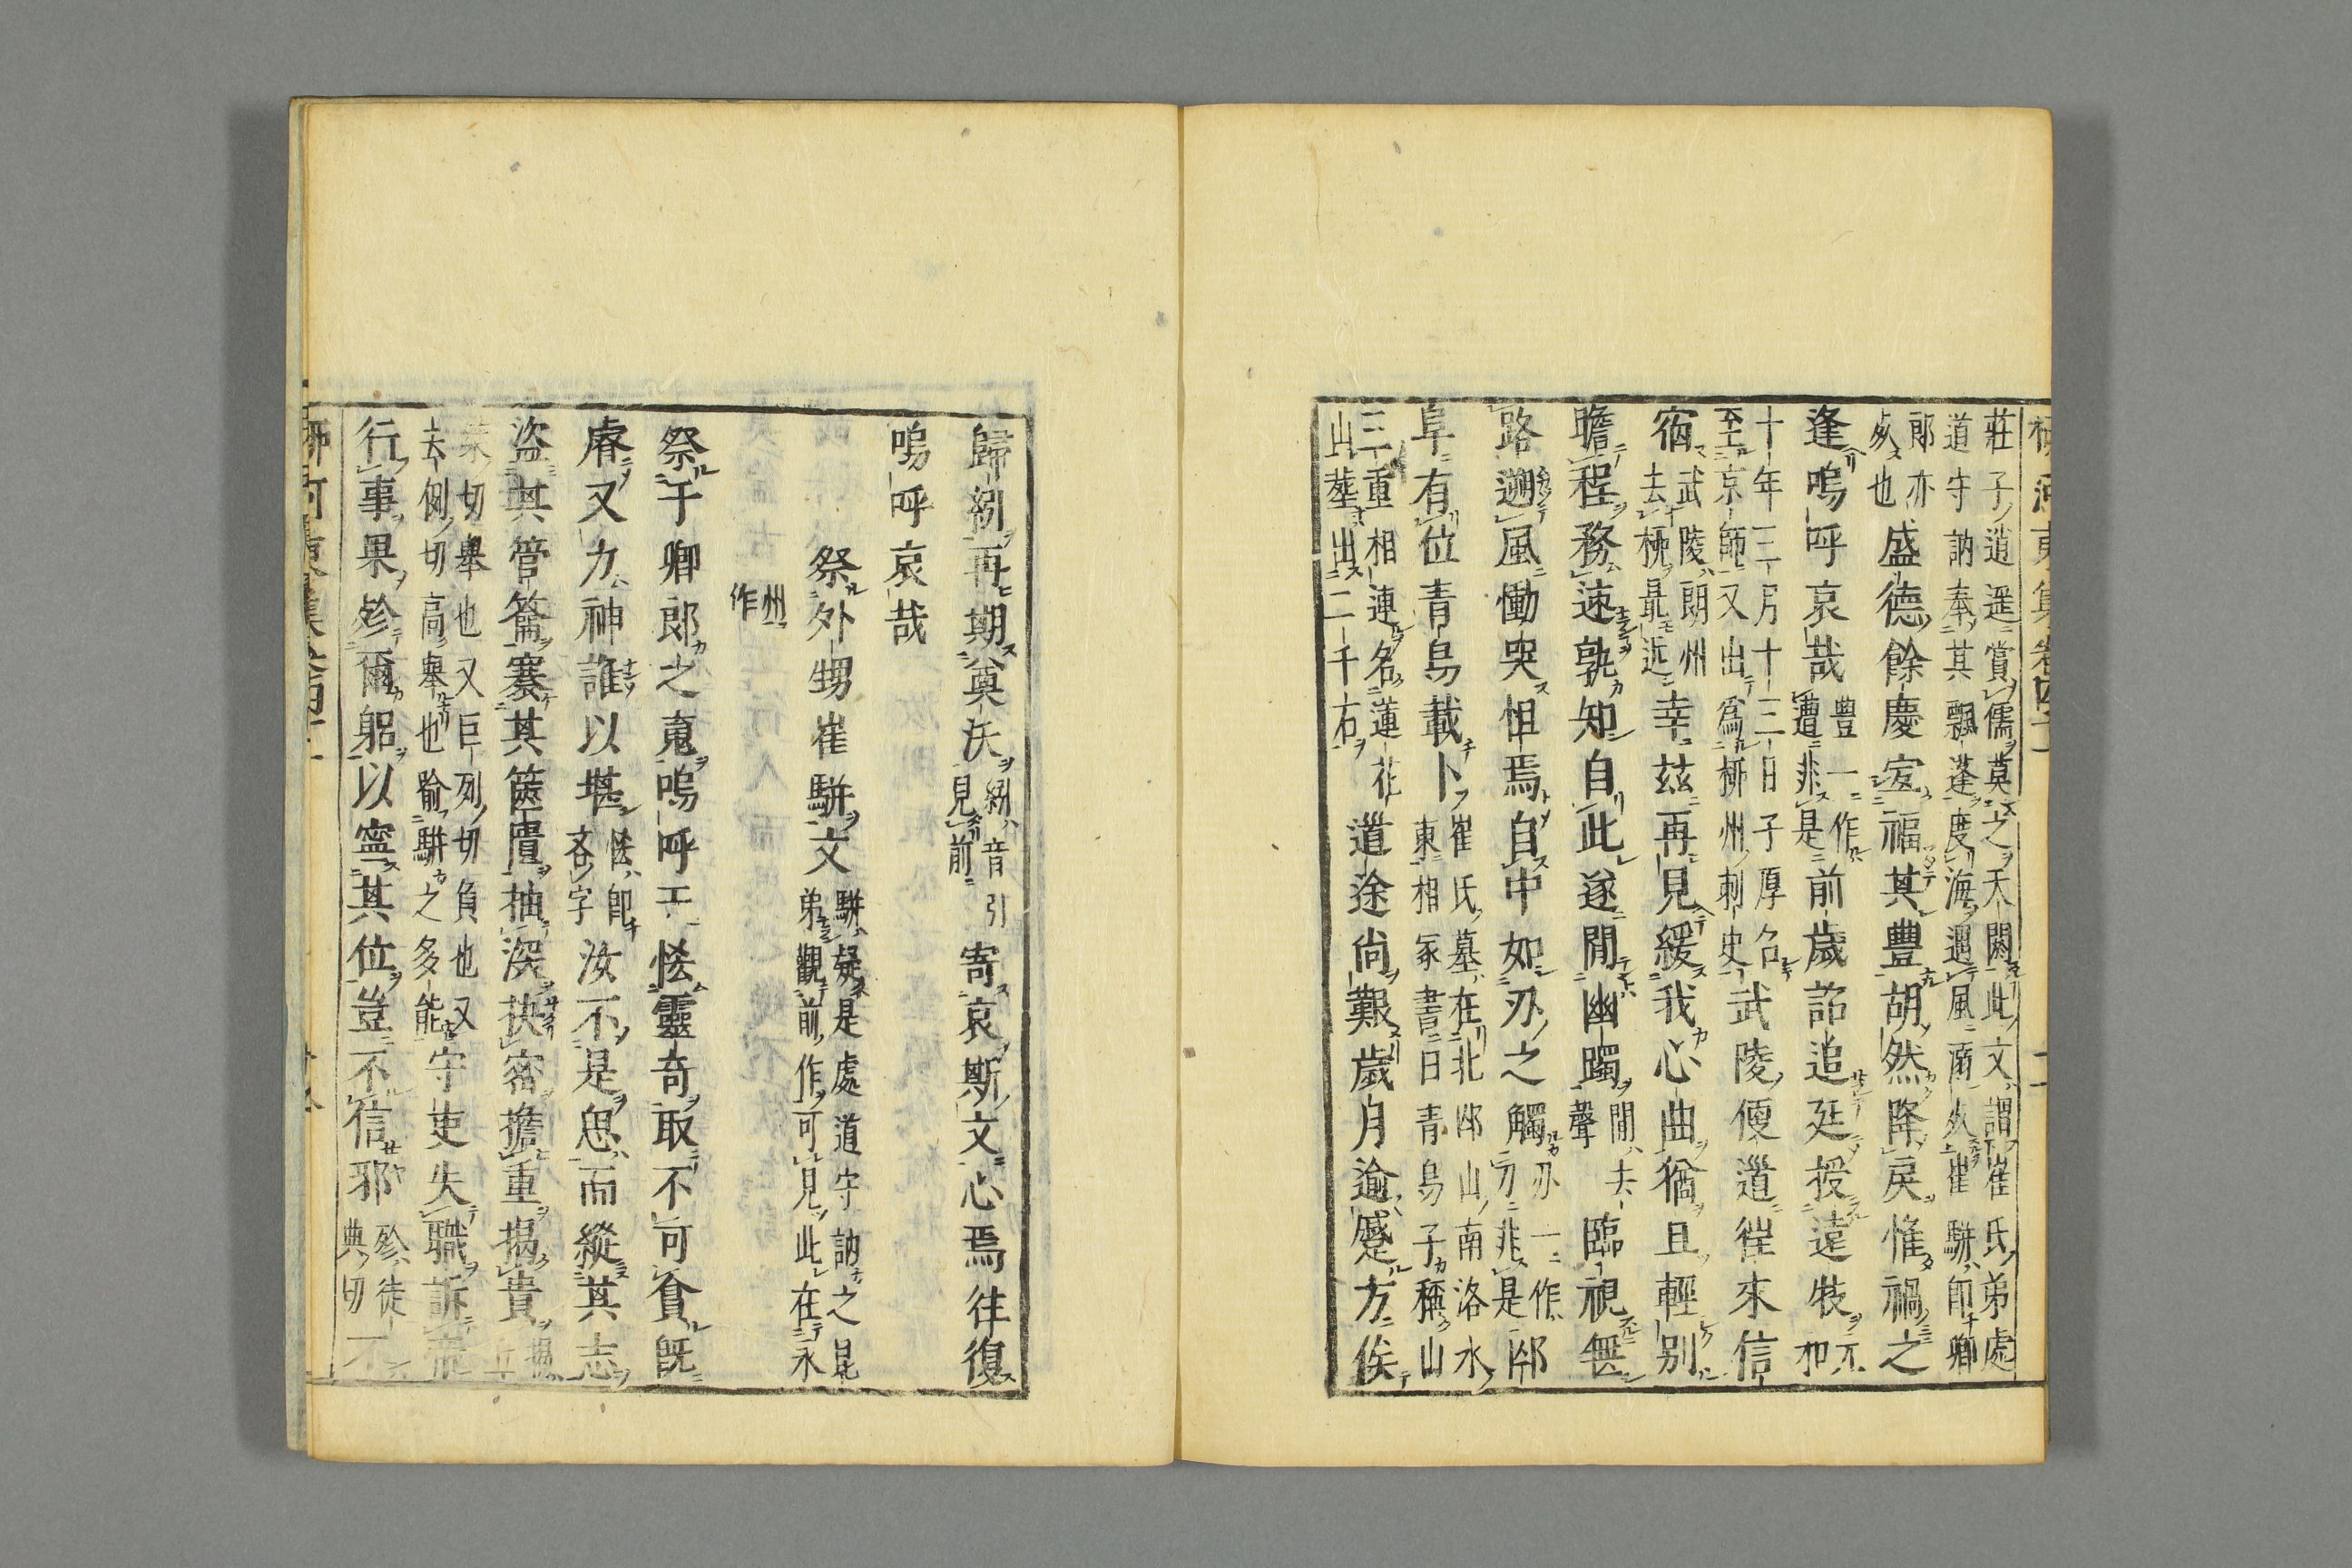 莊子逍遥賞儒莫之夭閼此文謂崔氏弟處
道守訥奉其飄蓬度海遇風溺火崔駢即卿
郎亦
夙也
盛德餘慶宜福其豊胡然降戾惟禍之
逢嗚呼哀哉
豊一作
遭非是
前歳詔追廷授遠牧
元和
十年三月十三日子厚名
至京師又出爲柳州刺史
武陵便道徃來信
宿
武陵朗州
去柳最近
幸茲再見緩我心曲猶且輕别
瞻程務速孰知自此遂間幽躅
間去
聲
臨視無
路遡風慟哭怛焉自中如刃之觸
刅一作
刀非是
邙
阜有位青烏載卜
崔氏墓在北邙山南洛水
東相冢書曰青烏子稱山
三重相連名蓮花
山塟出二千石
道途尚艱歳月逾蹙方俟
歸紖再期奠沃
紖音引
見前
寄哀斯文心焉徃復
嗚呼哀哉
祭外甥崔駢文
駢疑是處道守訥之昆
弟觀前作可見此在永
州
作
祭于卿郎之䰟嗚呼天㤼靈奇取不可貪旣
睿又力神誰以堪
㤼即
吝字
汝不是思而縱其志
盜其管籥褰其篋匵抽深抉密擔重掲貴
其切舉也又巨列切負也又
去例切高舉也喻駢之多能
守吏失職訴
行事果殄爾躳以寧其位豈不信邪
殄徒
典切
不
柳河東集卷四十一